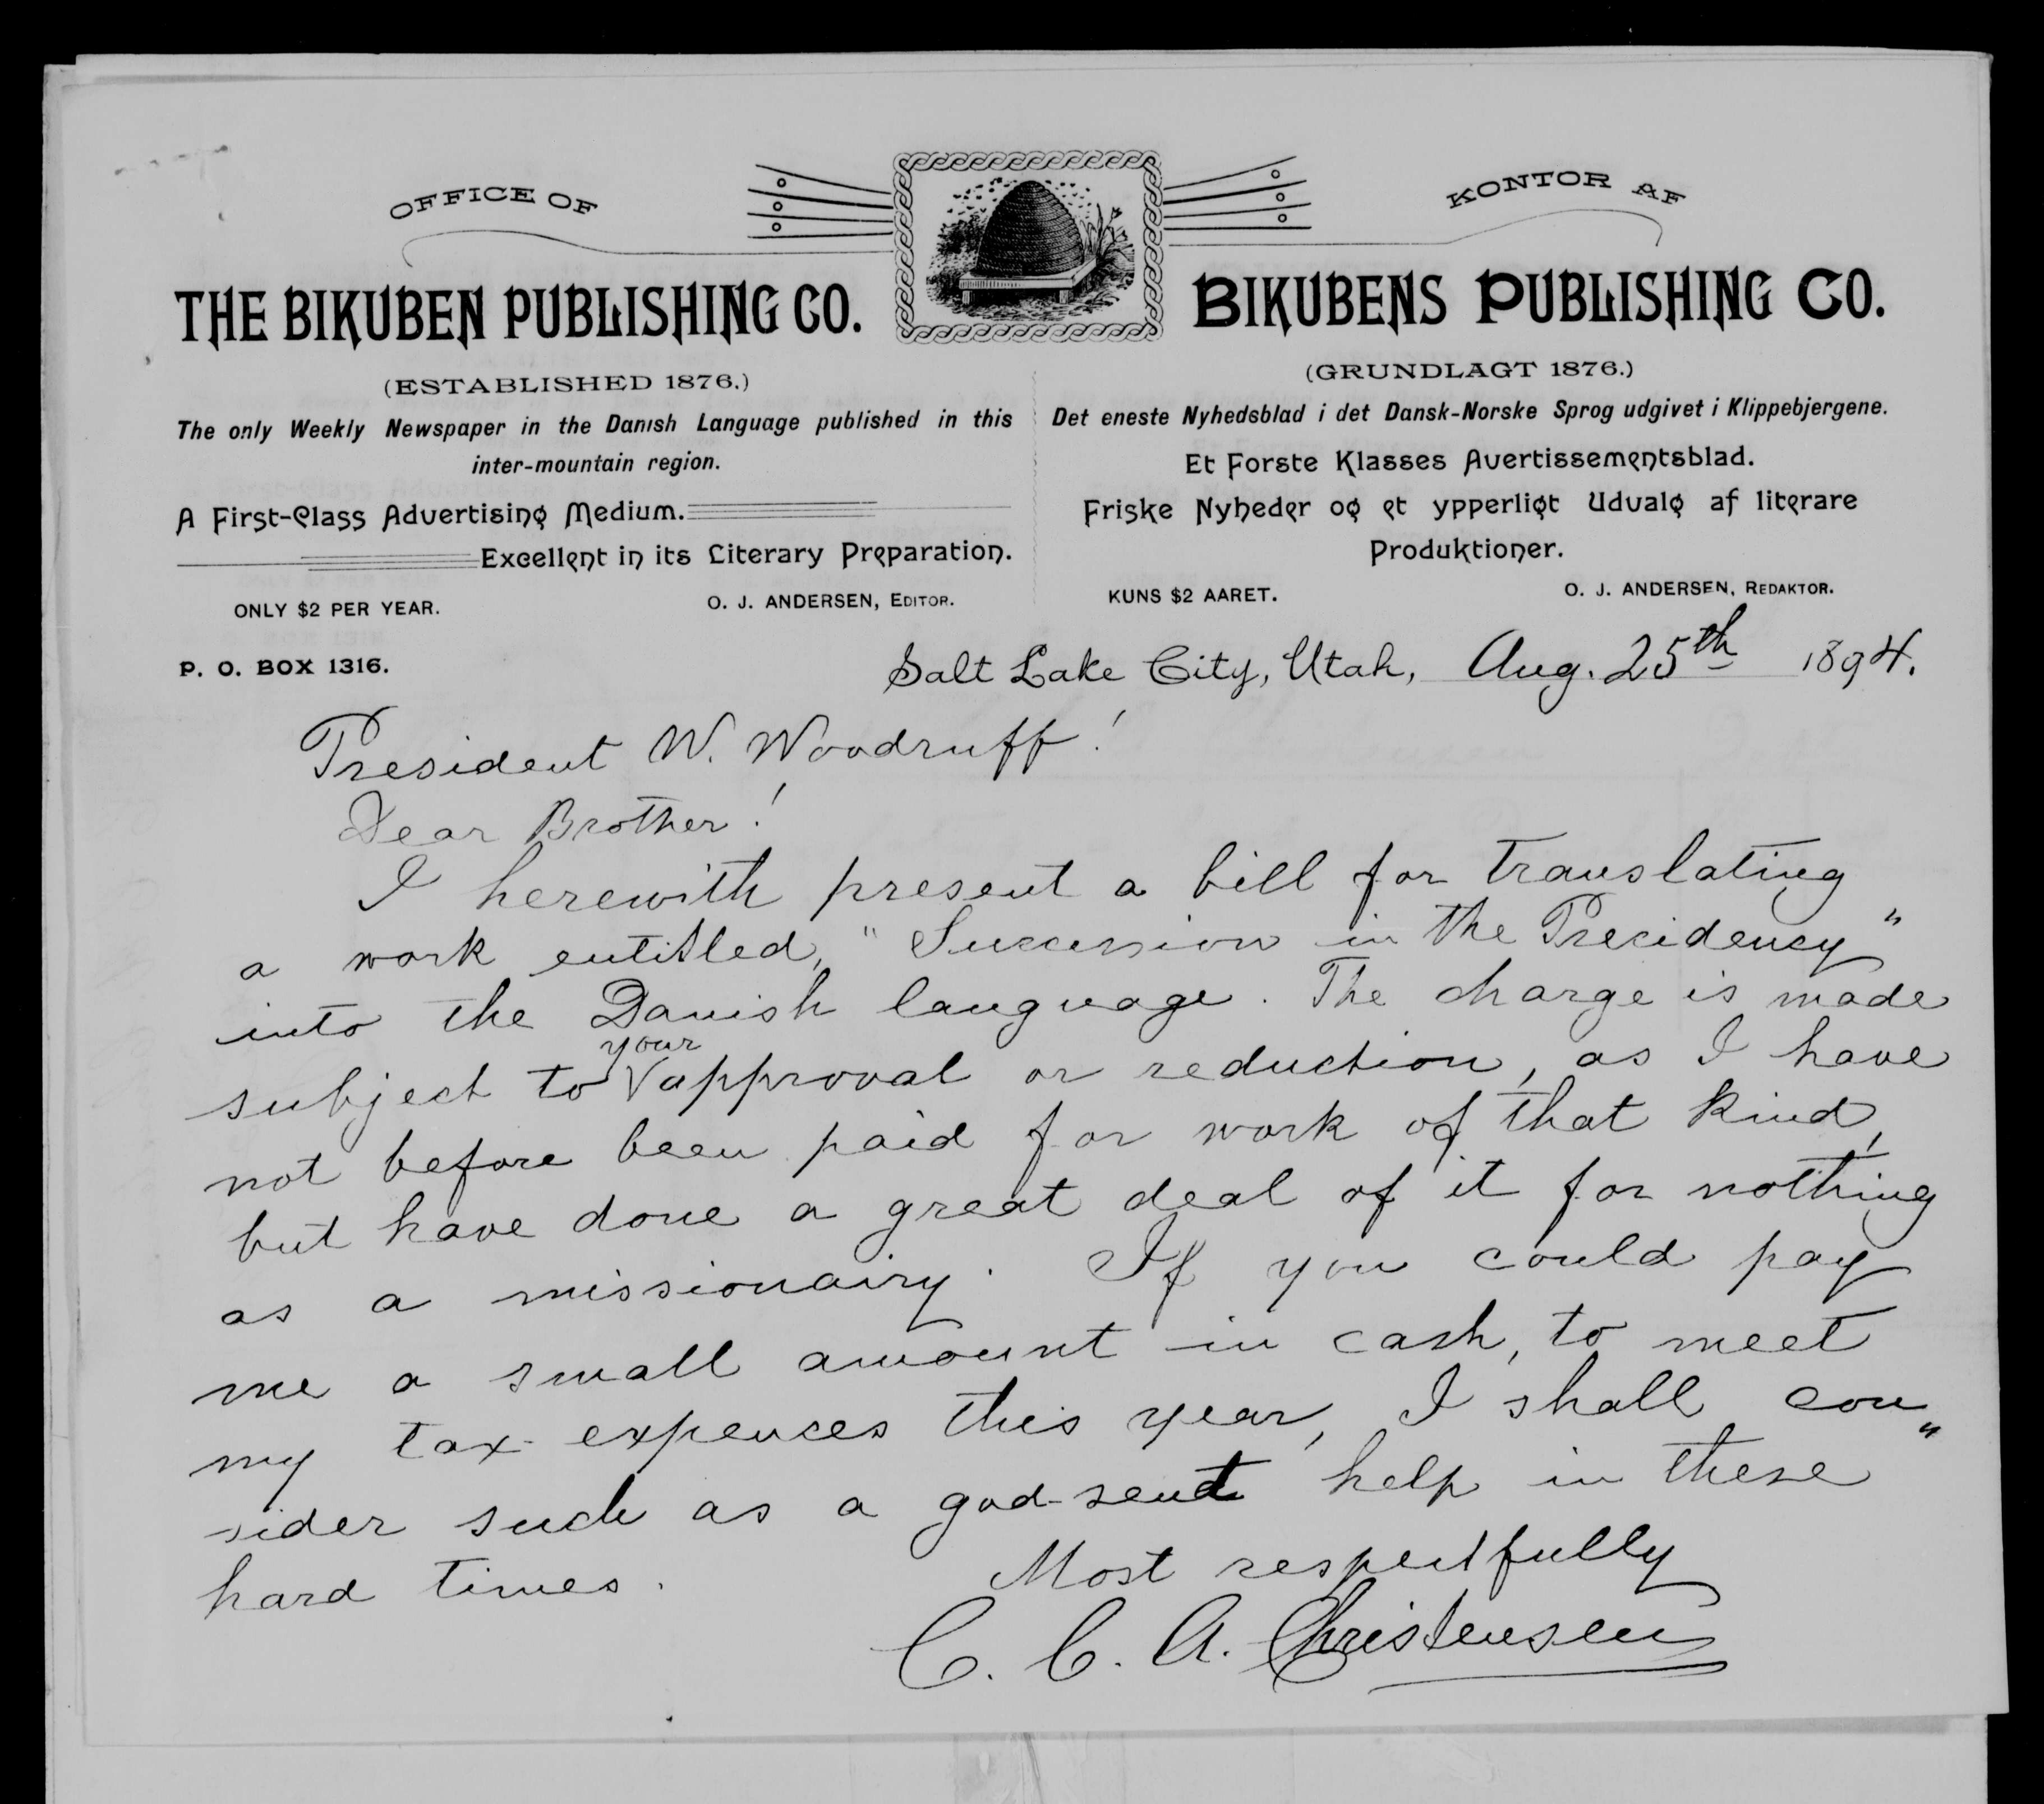 OFFICE OF
THE BIKUBEN PUBLISHING CO.
(ESTABLISHED 1876.)
The only Weekly Newspaper in the Danish Language published in this
inter-mountain region.
A First-Class Advertising Medium.
Excellent in its Literary Preparation.
ONLY $2 PER YEAR.
O. J. ANDERSEN, EDITOR.
P. O. BOX 1316.
KONTOR AF
BIKUBENS PUBLISHING CO.
(GRUNDLAGT 1876.)
Det eneste Nyhedsblad i det Dansk-Norske Sprog udgivet i Klippebjergene.
Et Forste Klasses Avertissementsblad.
Friske Nyheder og et ypperligt Udvalg af literare
Produktioner.
KUNS $2 AARET.
O. J. ANDERSEN, REDAKTOR.
Salt Lake City, Utah, Aug. 25th 1894.
President W. Woodruff!
Dear Brother!
I herewith present a bill for translating
a work entitled, "Succession in the Presidency"
into the Danish language. The charge is made
subject to your approval or reduction, as I have
not before been paid for work of that kind,
but have done a great deal of it for nothing
as a missionairy. If you could pay
me a small amount in cash, to meet
my tax expences this year, I shall con"
sider such as a god-sent help in these
hard times.
Most respectfully
C. C. A. Christensen